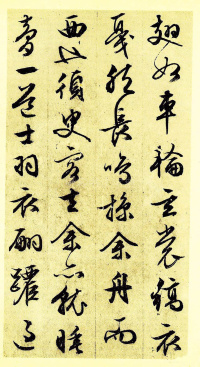 翅如車輪玄裳縞衣
戛然長鳴掠余舟而
西也須臾客去余亦就睡
夢一道士羽衣翩躚過